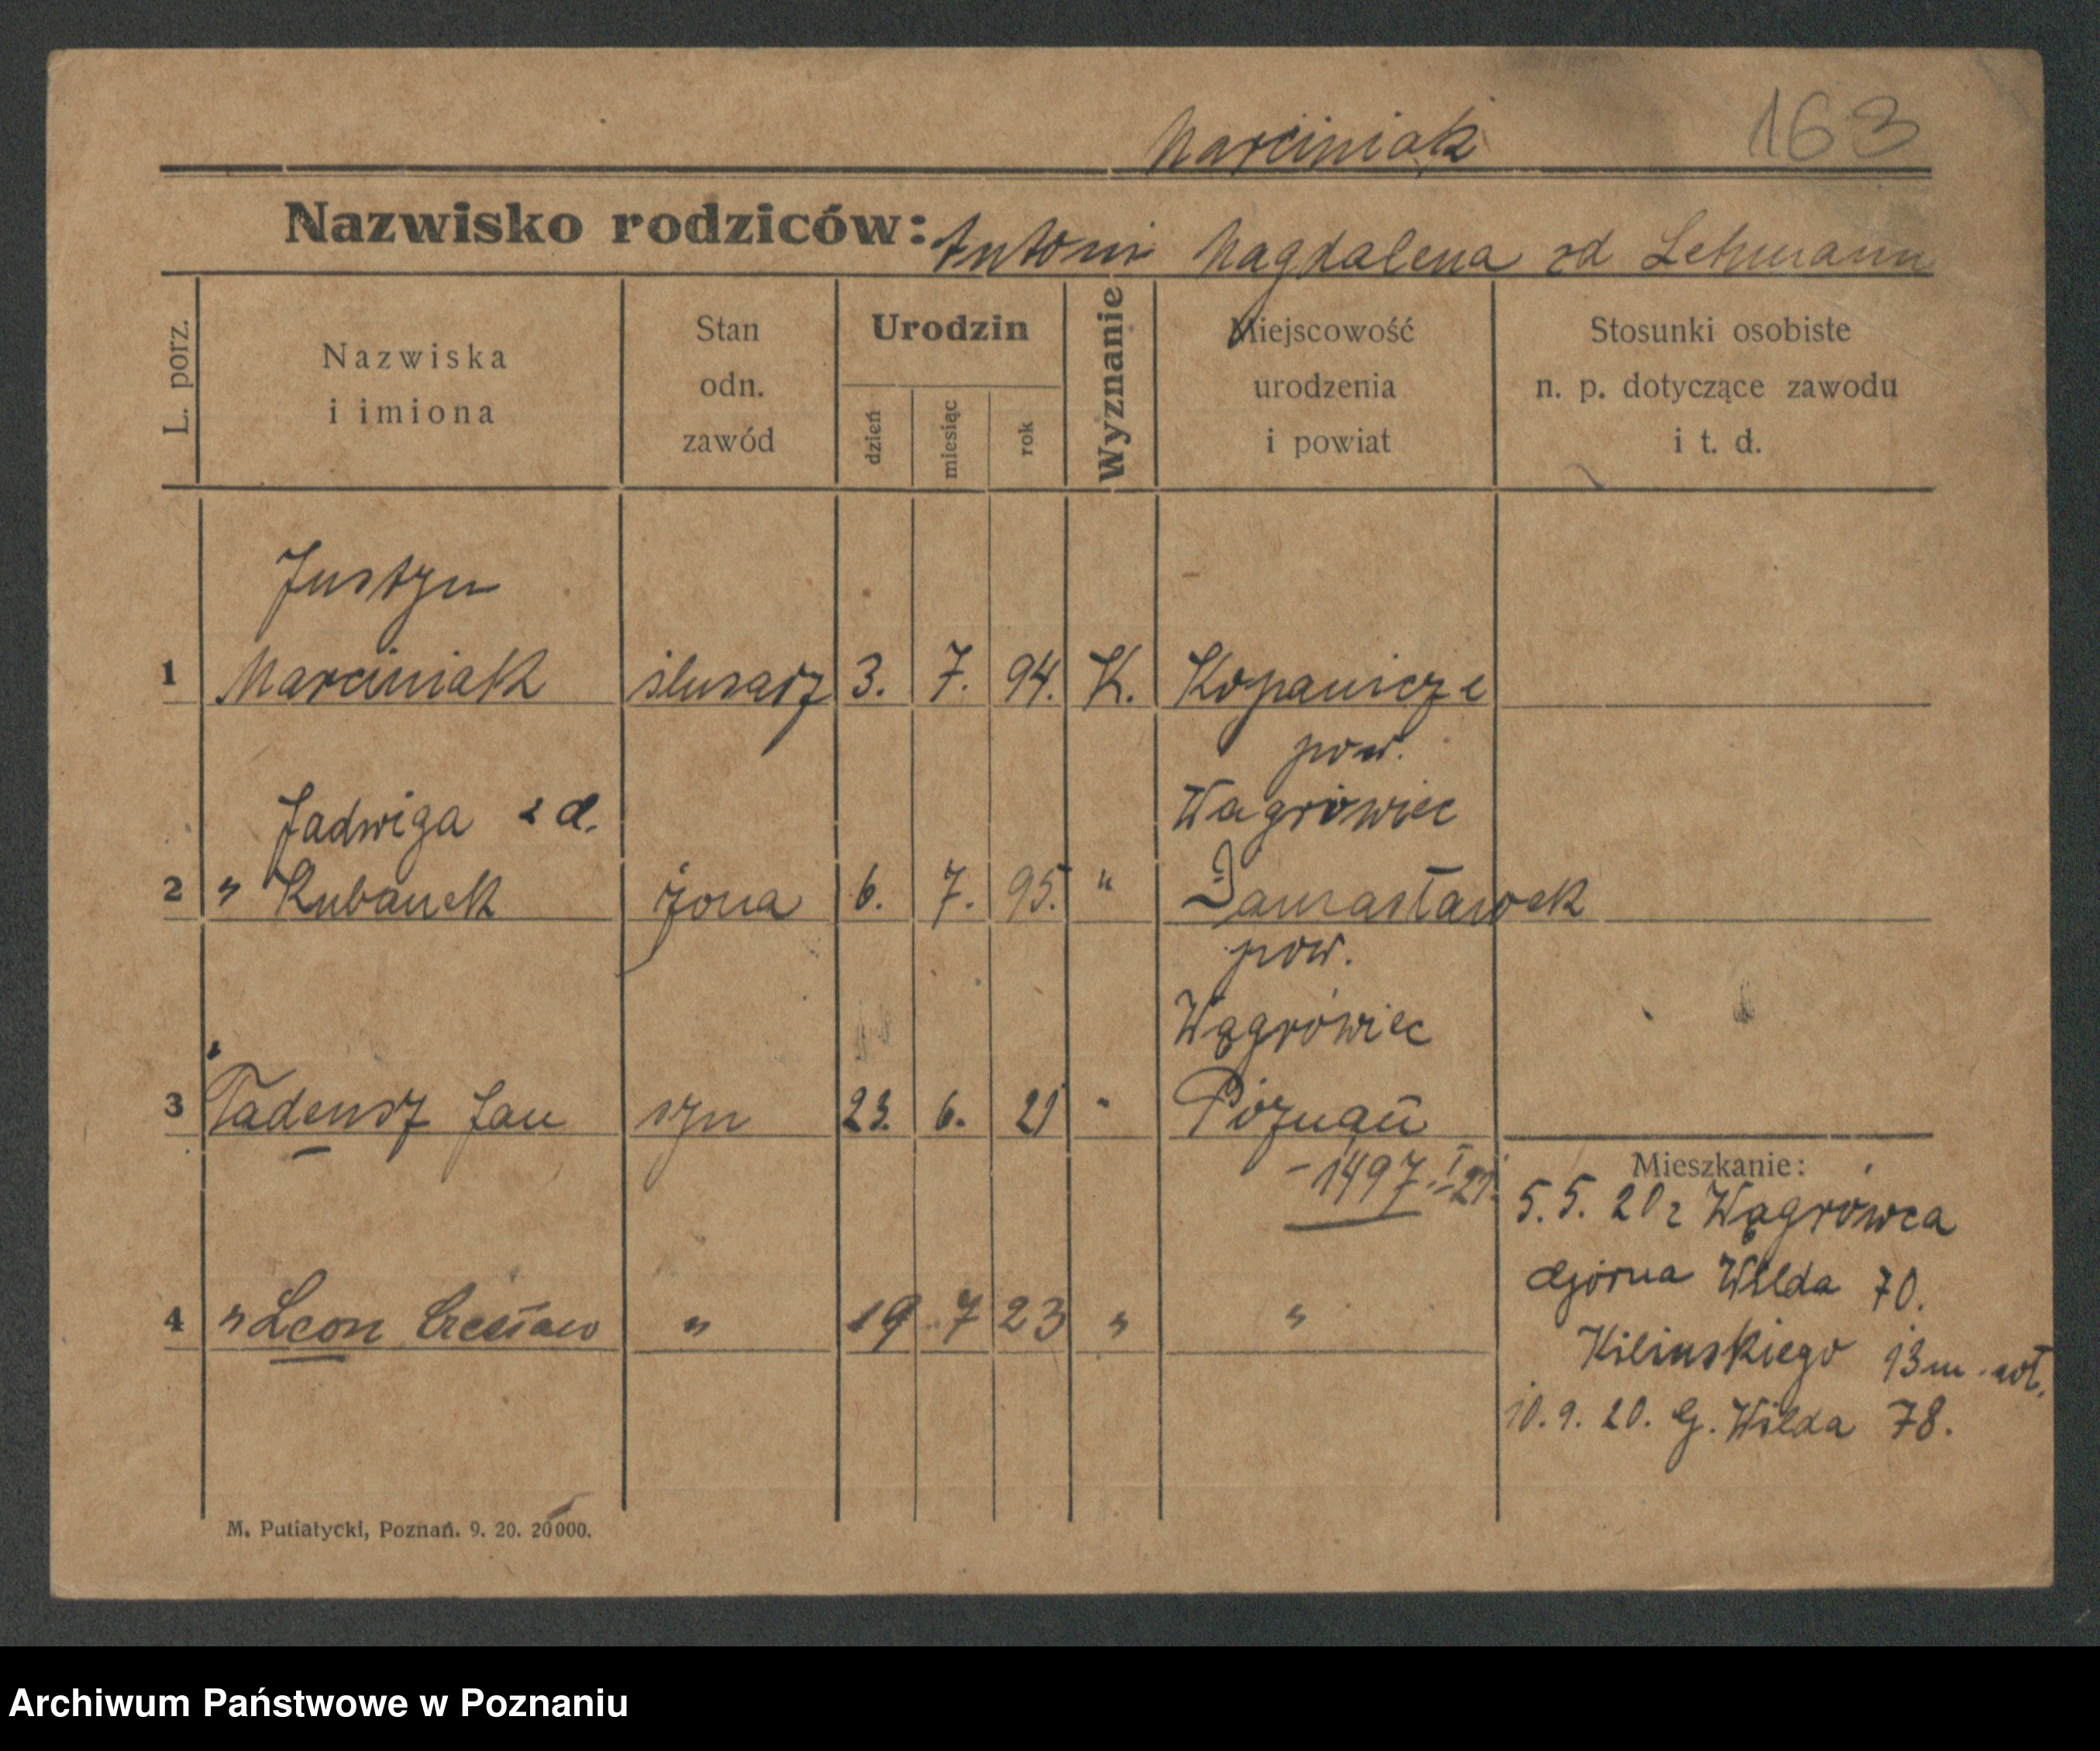 Marciniak 163
Nazwisko rodziców: Antoni Magdalena zd Lehmann
L. porz.
Nazwiska
i imiona
Stan
odn.
zawód
Urodzin
dzień
miesiąc
rok
Wyznanie
Miejscowość
urodzenia
i powiat
Stosunki osobiste
n. p. dotyczące zawodu
i t. d.
Justyn
1 Marciniak ślusarz 3. 7. 94. K.
pow.
Wągrówiec
Jadwiga z d.
2 " Kubanek żona 6. 7. 95. "
pow.
Wągrówiec
3 Tadeusz Jan syn 23. 6. 21 " Poznań
-1497. I 21.
4 " Leon Czesław " 19 7 23 " "
Mieszkanie:
5. 5. 20 z Wągrówca
Górna Wilda 70.
Kilinskiego 13 m. wł.
10. 9. 20. G. Wilda 78.
M. Putiatycki, Poznań. 9. 20. 20000.
Archiwum Państwowe w Poznaniu